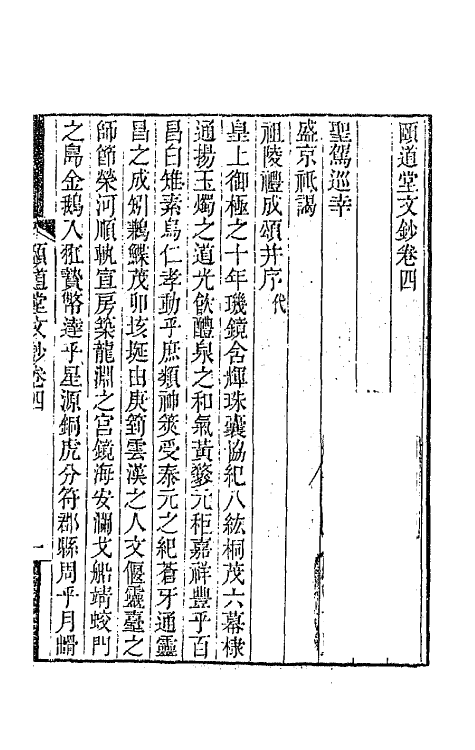 頤道堂文鈔卷四
聖駕巡幸
盛京祇謁
祖陵禮成頌并序代
皇上御極之十年璣鏡含輝珠囊協紀八紘桐茂六幕棣
通揚玉燭之道光飲醴泉之和氣黃蔘元秬嘉祥豐乎百
昌白雉素烏仁孝動乎庶類神筴受泰元之紀蒼牙通靈
昌之成矧鶼鰈茂卯垓埏由庚籥雲漢之人文偃靈臺之
師節榮河順軌宣房築龍淵之宮鏡海安瀾戈船靖蛟門
之島金鵝入貢贄幣達乎星源銅虎分符郡縣周乎月㟙
頤道堂文鈔卷四
一